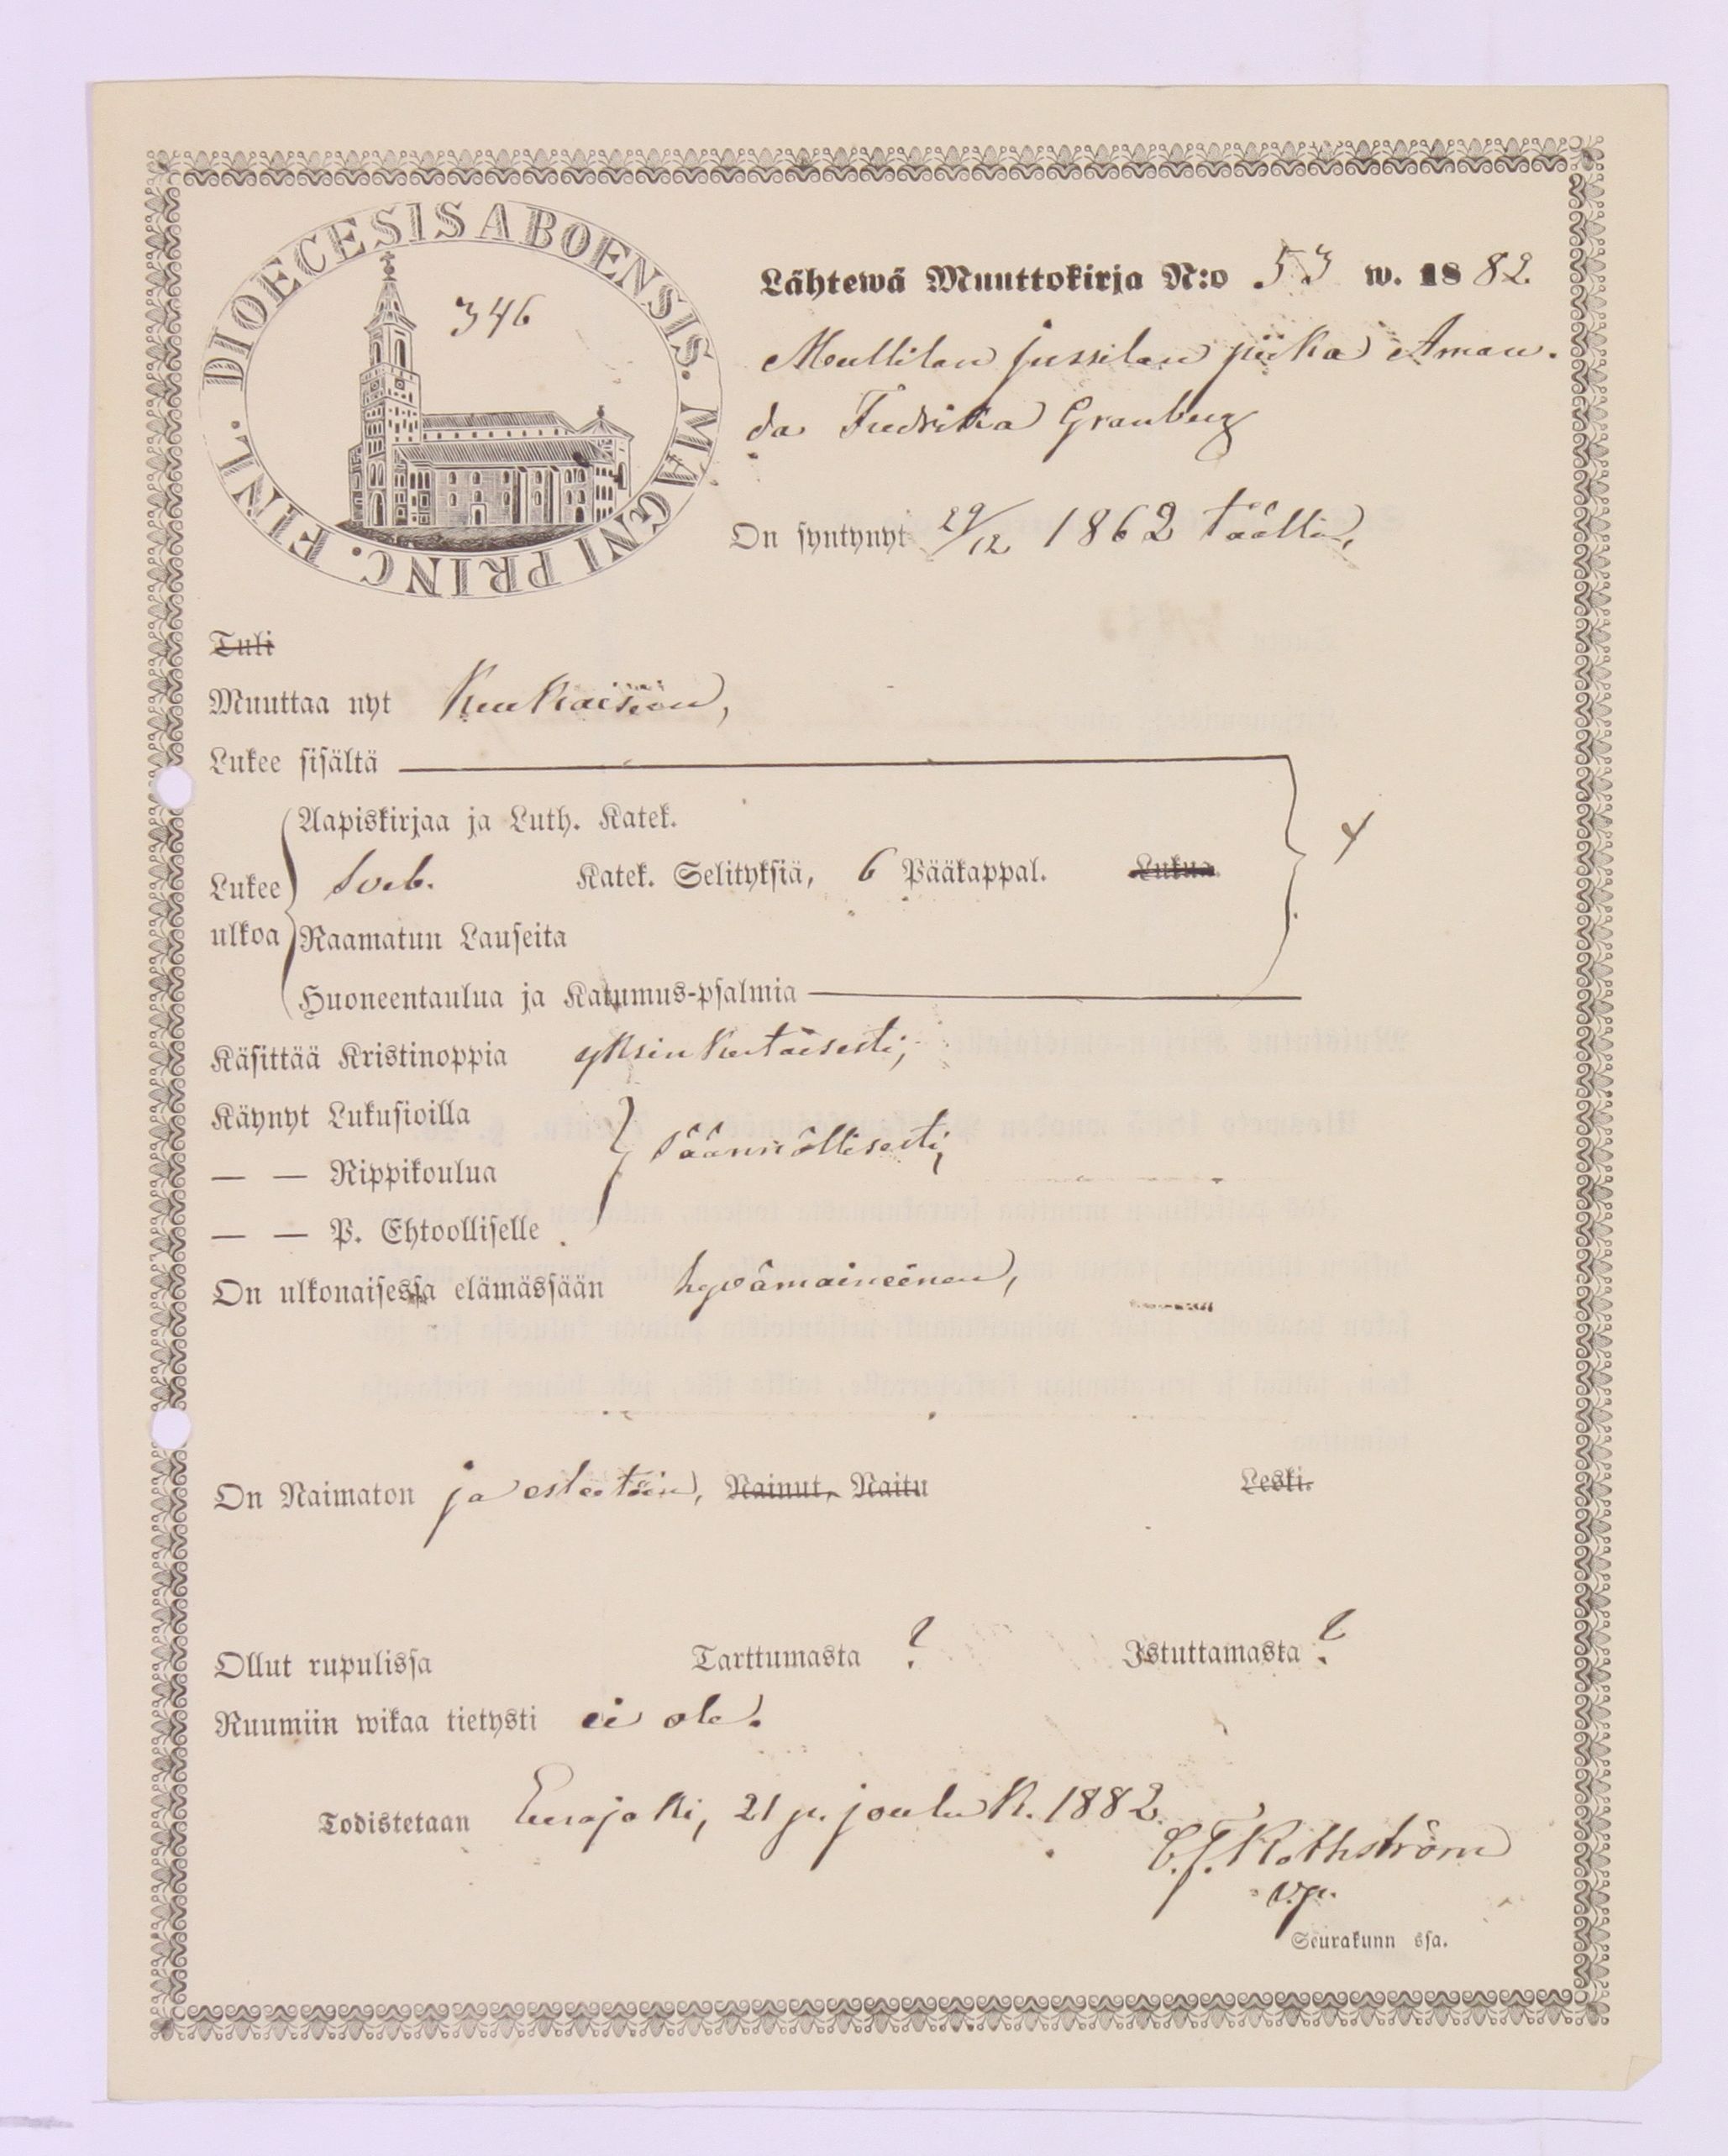 DIOECESIS ABOENSIS. MAGNI PRINC. FINL.
346
Lähtewä Muuttokirja N:o 53 w. 1882
Mullilan Jussilan piika Aman-
da Fredrika Granberg
On syntynyt 29/12 1862 täällä,
Tuli
Muuttaa nyt Kiukaisiin,
Lukee sisältä
Aapiskirjaa ja Luth. Katek.
Lukee ulkoa Sveb. Katek. Selityksiä, 6 Pääkappal. Lukua.
Raamatun Lauseita
Huoneentaulua ja Katumus-psalmia
Käsittää Kristinoppia yksinkertaisesti,
Käynyt Lukusioilla
— — Rippikoulua säännöllisesti,
— — P. Ehtoolliselle
On ulkonaisessa elämässään hyvämaineinen,
On Naimaton ja esteetöin, Nainut, Naitu Leski.
Ollut rupulissa Tarttumasta ? Istuttamasta ?
Ruumiin wikaa tietysti ei ole.
Todistetaan Eurajoki, 21 p. jouluk. 1882.
C. F. Rothström
v.p.
Seurakunn ssa.